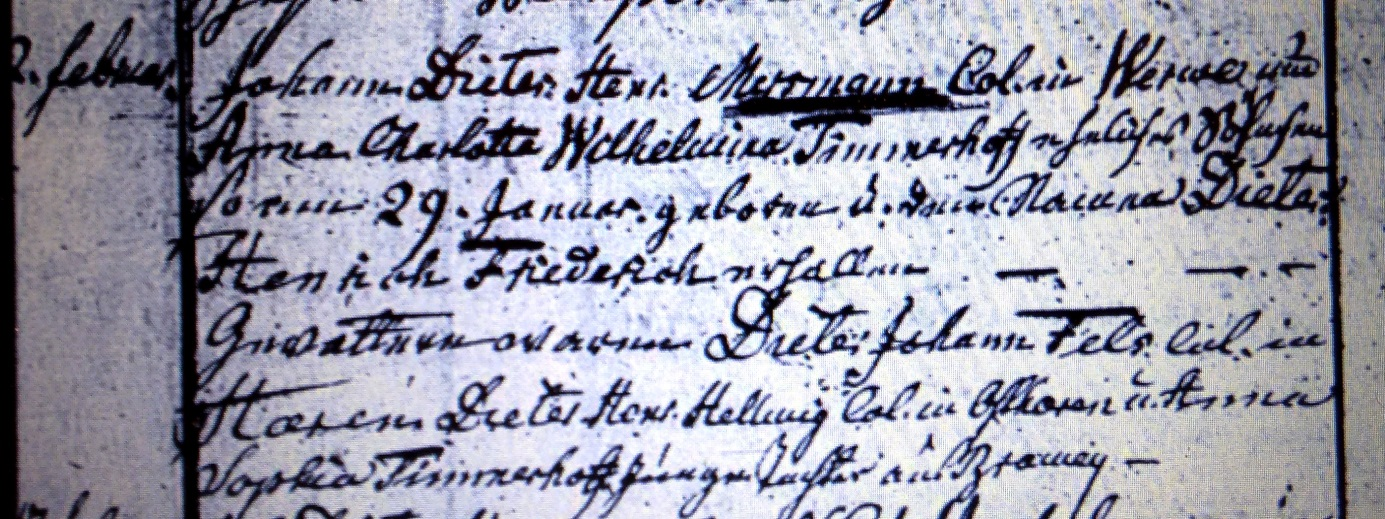 2. Februar. Johann Dieter. Henr. Merrmann Col. in Werwe und
Anna Charlotta Wilhelmina Timmerhoff eheliches Söhnchen
so am 29. Januar. geboren u. den Namen Dieter
Henrich Friederich erhallten
Gevattern waren Dieter Johann Fels. Col. in
Haeren Dieter Henr. Hellwig Col. in u. Anna
Sophia Timmerhoff Junge Tochter aus Bramey